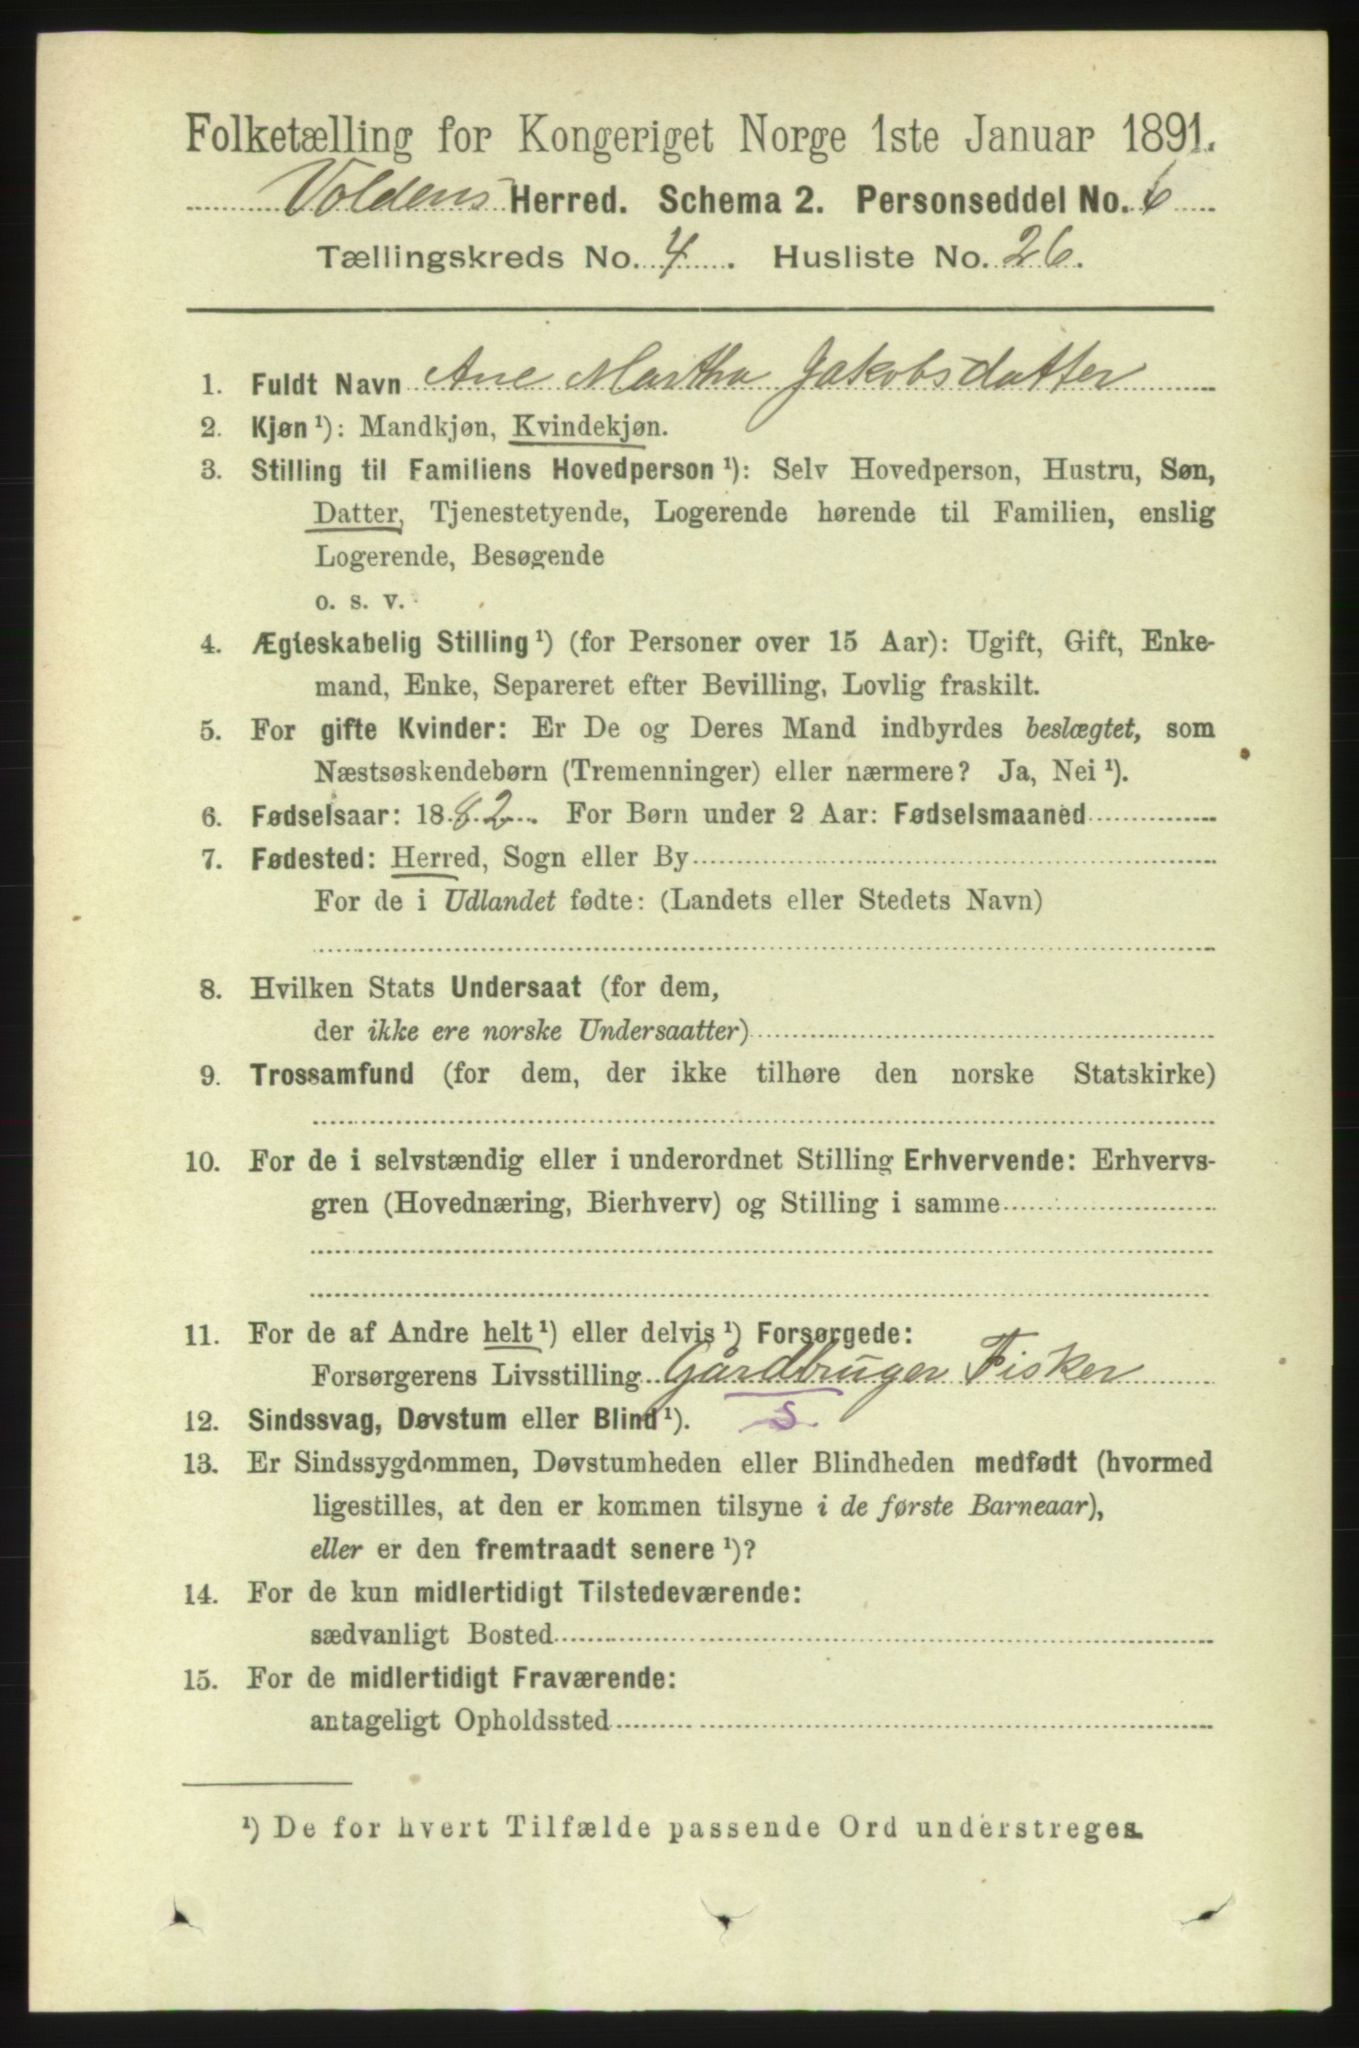 Folketælling for Kongeriget Norge 1ste Januar 1891.
Voldens Herred. Schema 2. Personseddel No. 6
Tællingskreds No. 4. Husliste No. 26.
1. Fuldt Navn Ane Martha Jakobsdatter
2. Kjøn ¹): Mandkjøn, Kvindekjøn.
3. Stilling til Familiens Hovedperson ¹): Selv Hovedperson, Hustru, Søn,
Datter, Tjenestetyende, Logerende hørende til Familien, enslig
Logerende, Besøgende
o. s. v.
4. Ægteskabelig Stilling ¹) (for Personer over 15 Aar): Ugift, Gift, Enke-
mand, Enke, Separeret efter Bevilling, Lovlig fraskilt.
5. For gifte Kvinder: Er De og Deres Mand indbyrdes beslægtet, som
Næstsøskendebørn (Tremenninger) eller nærmere? Ja, Nei ¹).
6. Fødselsaar: 1882. For Børn under 2 Aar: Fødselsmaaned
7. Fødested: Herred, Sogn eller By
For de i Udlandet fødte: (Landets eller Stedets Navn)
8. Hvilken Stats Undersaat (for dem,
der ikke ere norske Undersaatter)
9. Trossamfund (for dem, der ikke tilhøre den norske Statskirke)
10. For de i selvstændig eller i underordnet Stilling Erhvervende: Erhvervs-
gren (Hovednæring, Bierhverv) og Stilling i samme
11. For de af Andre helt ¹) eller delvis ¹) Forsørgede:
Forsørgerens Livsstilling Gårdbruger Fisker
12. Sindssvag, Døvstum eller Blind ¹). S.
13. Er Sindssygdommen, Døvstumheden eller Blindheden medfødt (hvormed
ligestilles, at den er kommen tilsyne i de første Barneaar),
eller er den fremtraadt senere ¹)?
14. For de kun midlertidigt Tilstedeværende:
sædvanligt Bosted
15. For de midlertidigt Fraværende:
antageligt Opholdssted
¹) De for hvert Tilfælde passende Ord understreges.